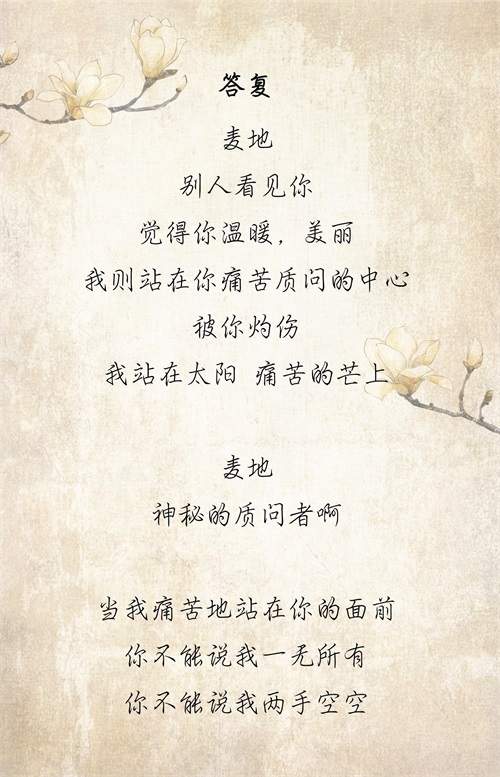 答复
麦地
别人看见你
觉得你温暖，美丽
我则站在你痛苦质问的中心
被你灼伤
我站在太阳 痛苦的芒上
麦地
神秘的质问者啊
当我痛苦地站在你的面前
你不能说我一无所有
你不能说我两手空空